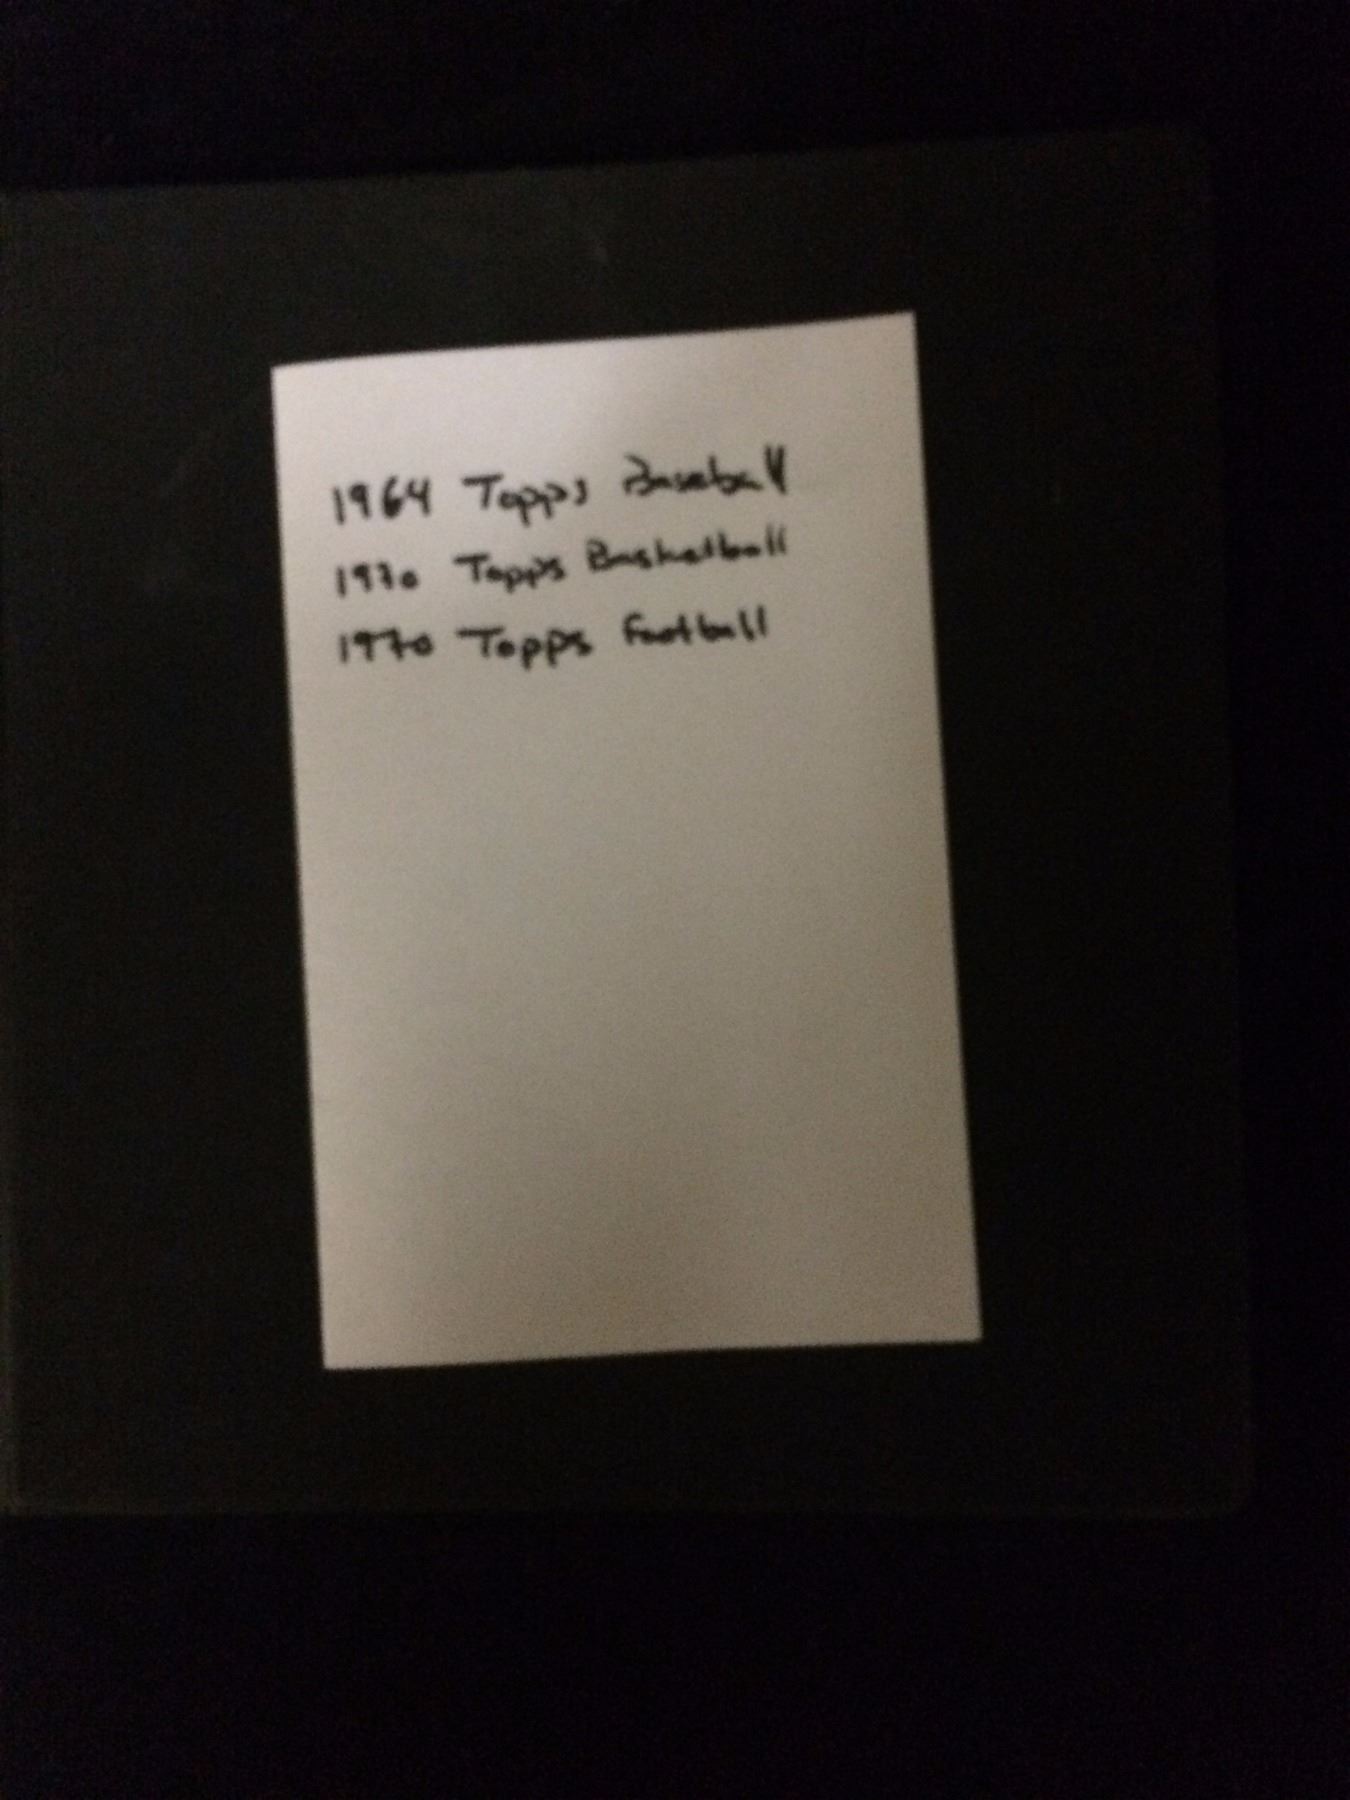 1964 Topps Baseball
1970 Topps Basketball
1970 Topps Football